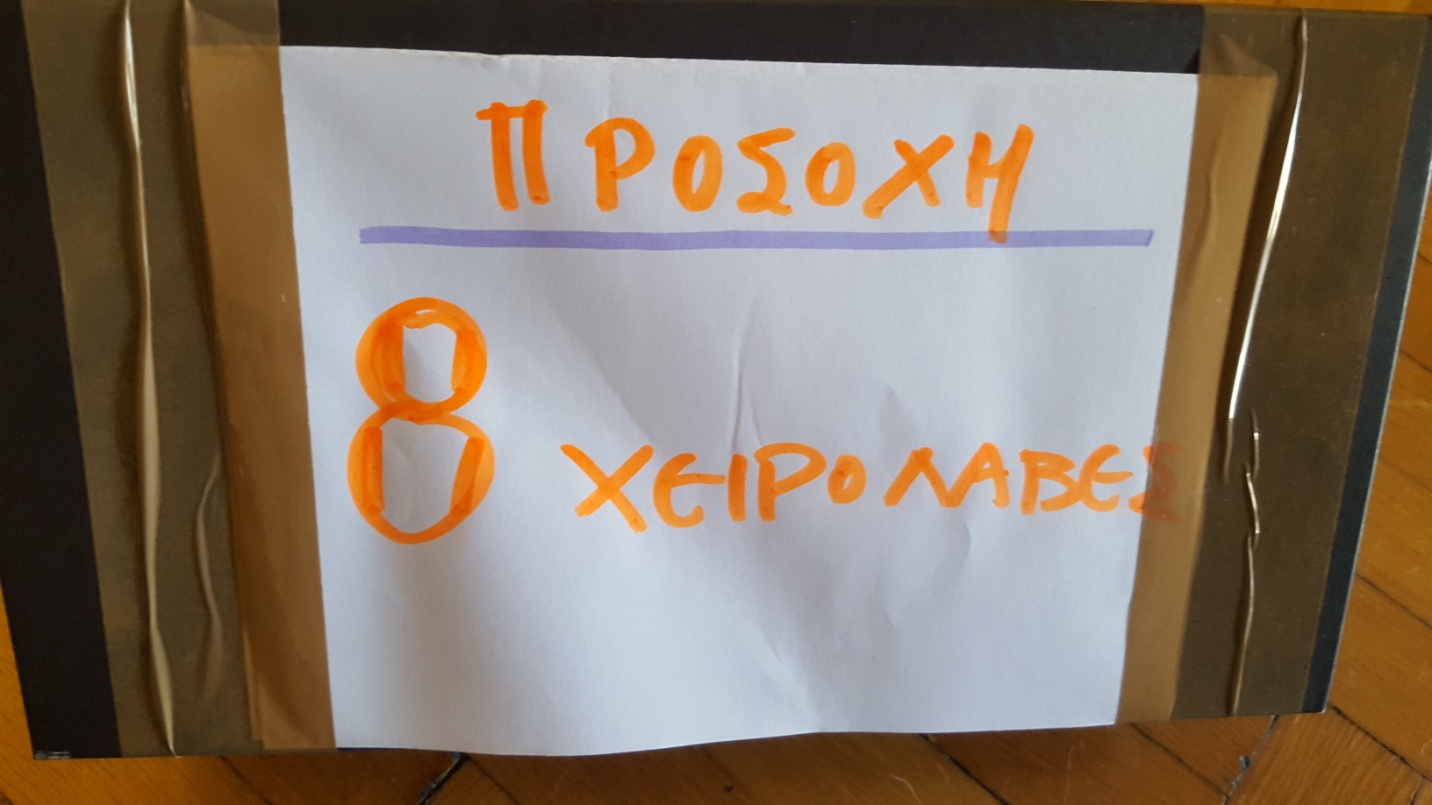 ΠΡΟΣΟΧΗ
8 ΧΕΙΡΟΛΑΒΕΣ